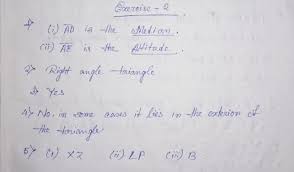 Exercise - 2
1) (i) AD is the Median.
(ii) AE is the Altitude.
2) Right angle triangle
3) Yes
4) No, in some cases it lies in the exterior of
the triangle
5) (i) XZ (ii) LP (iii) B